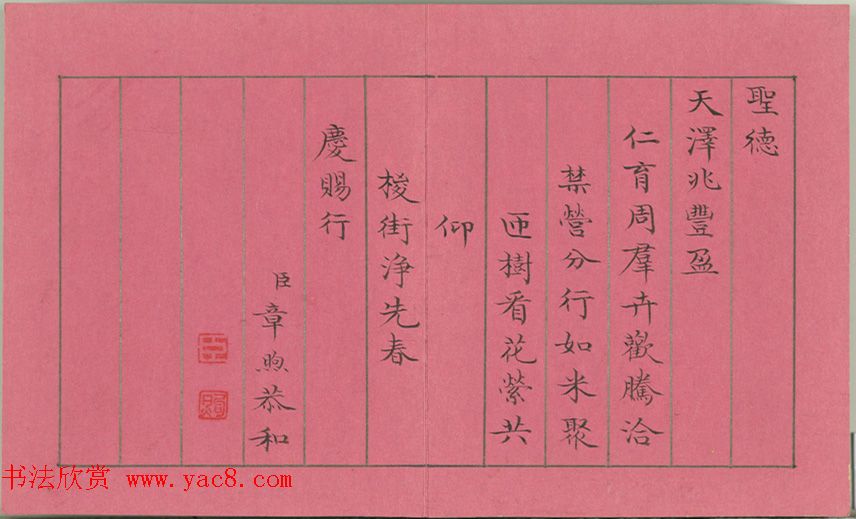 聖德
天澤兆豐盈
仁育周羣卉歡騰洽
禁營分行如米聚
匝樹看花縈共
仰
梭街淨先春
慶賜行
臣章煦恭和
书法欣赏 www.yac8.com